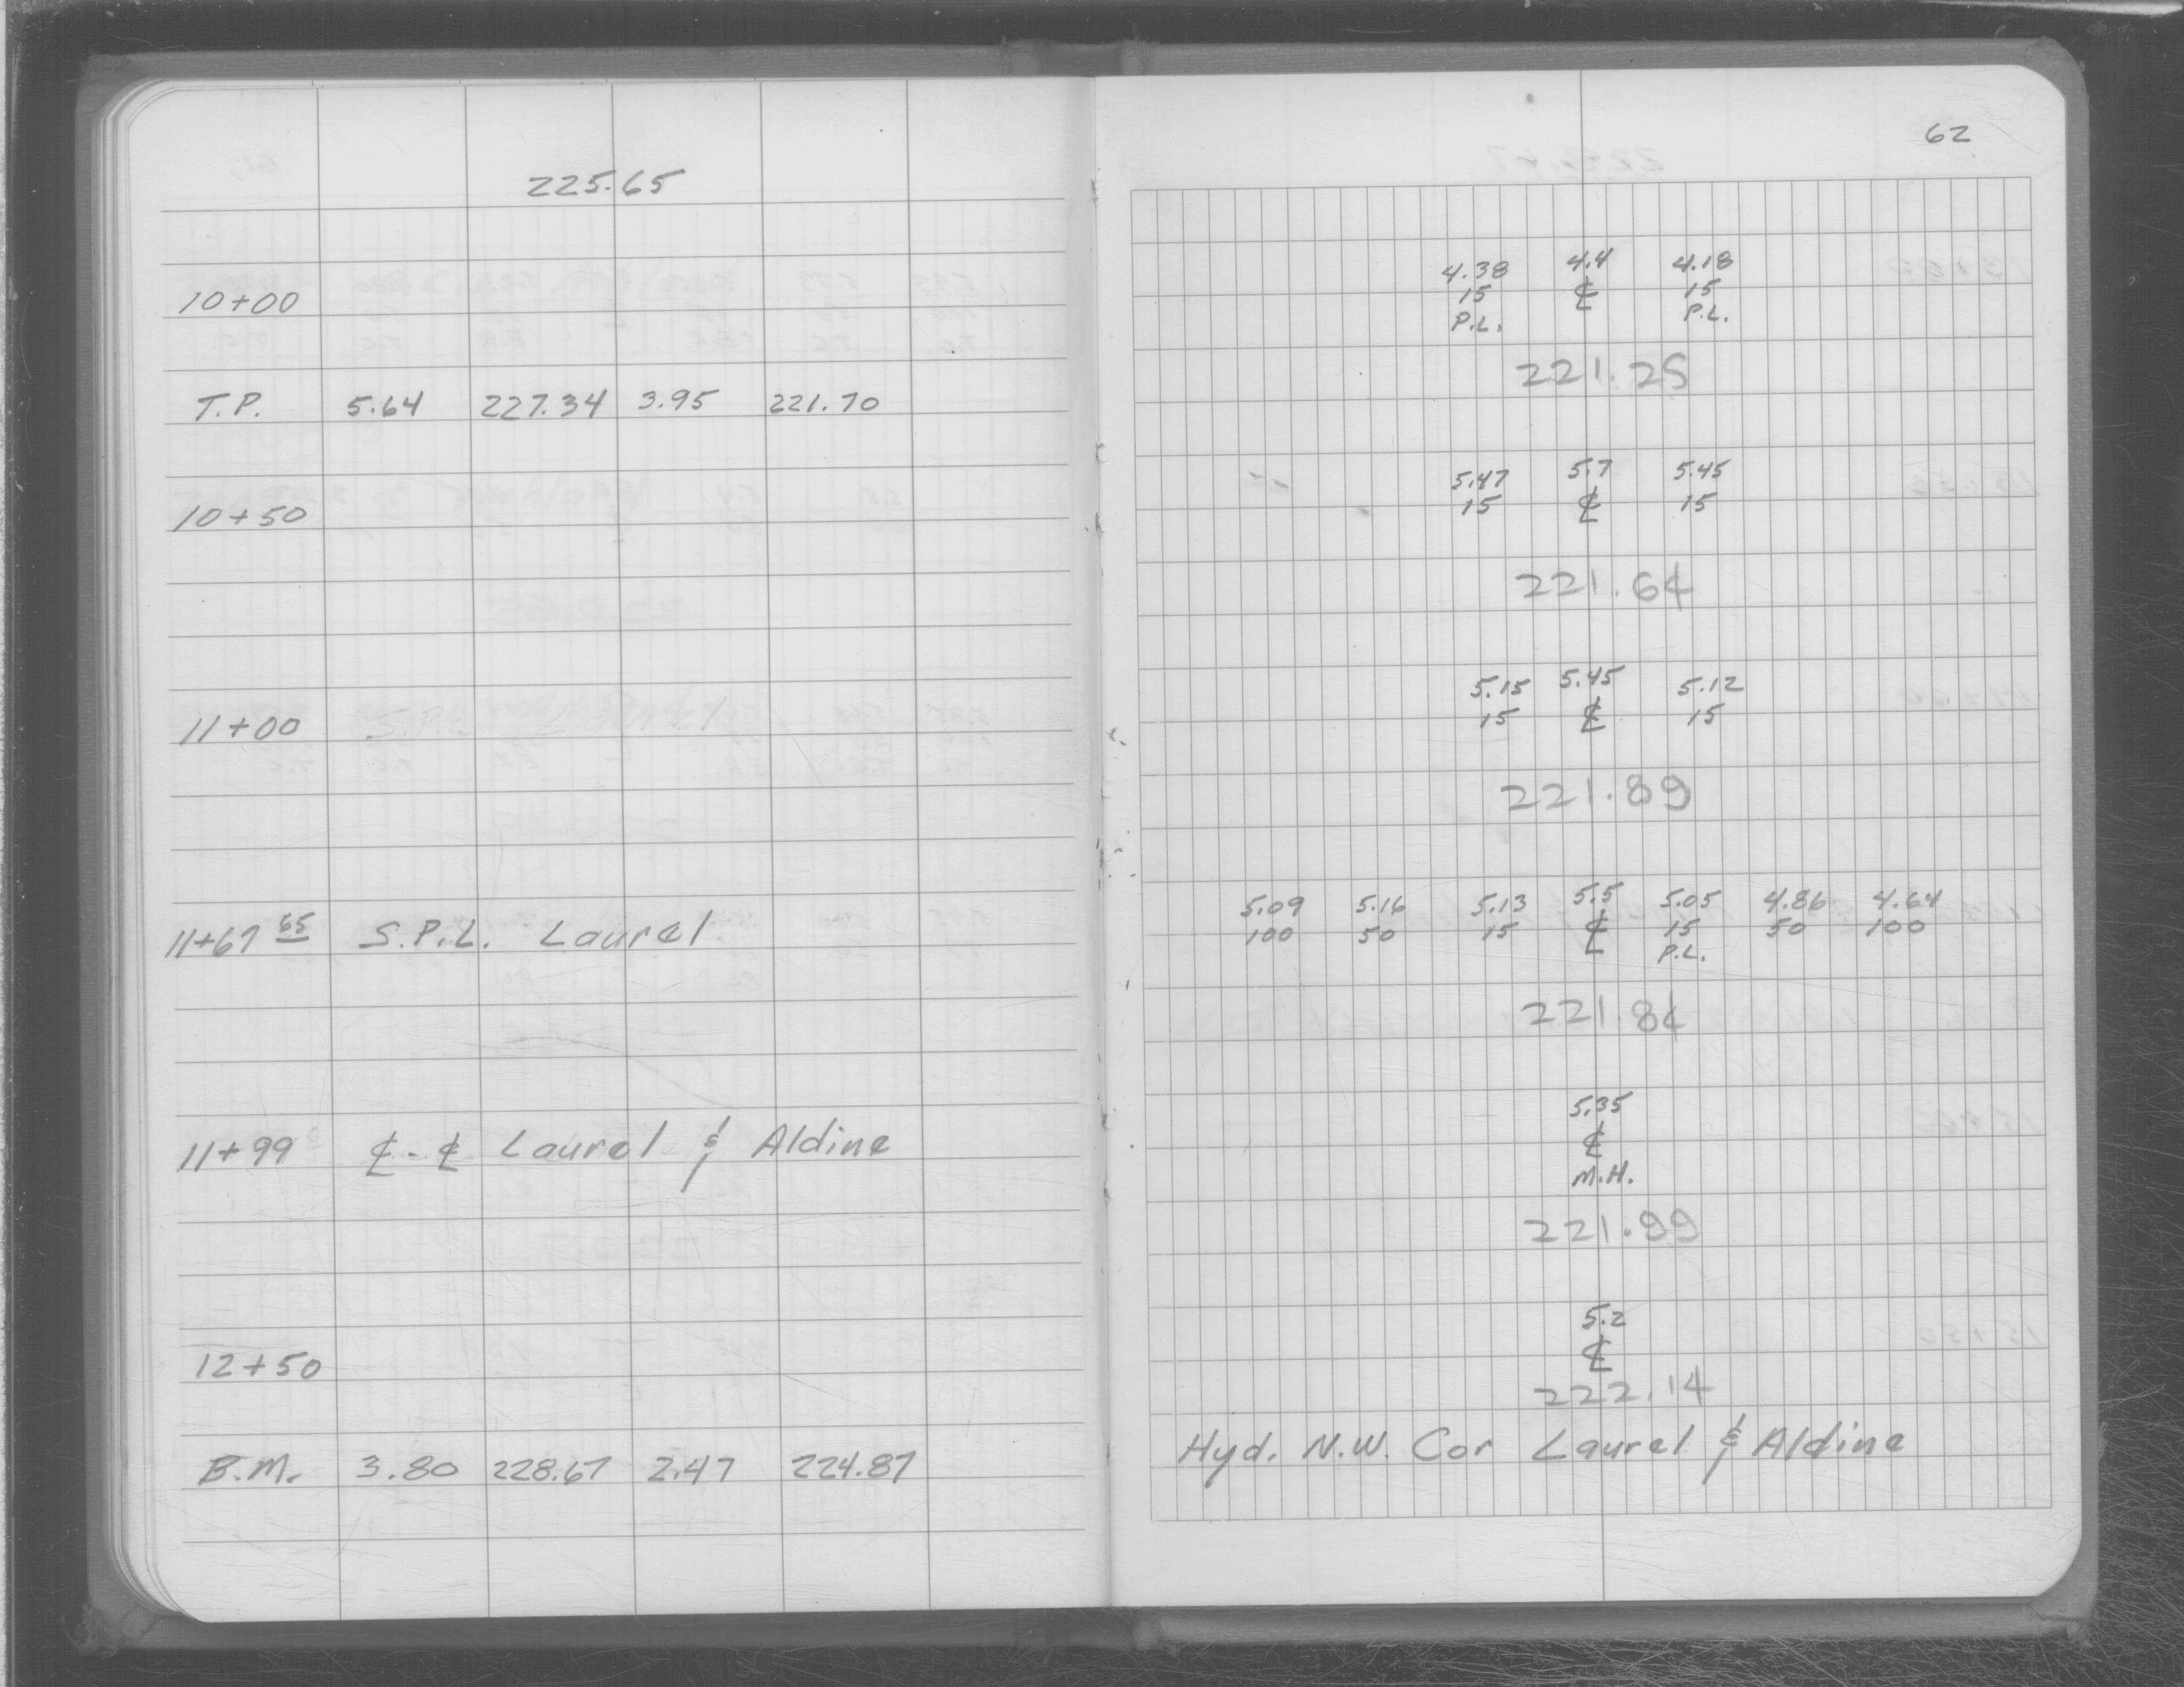 62
225.65
10+00
4.38 4.4 4.18
15 ℄ 15
P.L. P.L.
221.25
T.P. 5.64 227.34 3.95 221.70
10+50
5.47 5.7 5.45
15 ℄ 15
221.64
11+00
5.15 5.45 5.12
15 ℄ 15
221.89
11+67 65 S.P.L. Laurel
5.09 5.16 5.13 5.5 5.05 4.86 4.64
100 50 15 ℄ 15 50 100
P.L.
221.84
11+99 ℄-℄ Laurel & Aldine
5.35
℄
M.H.
221.99
12+50
5.2
℄
222.14
B.M. 3.80 228.67 2.47 224.87
Hyd. N.W. Cor Laurel & Aldine